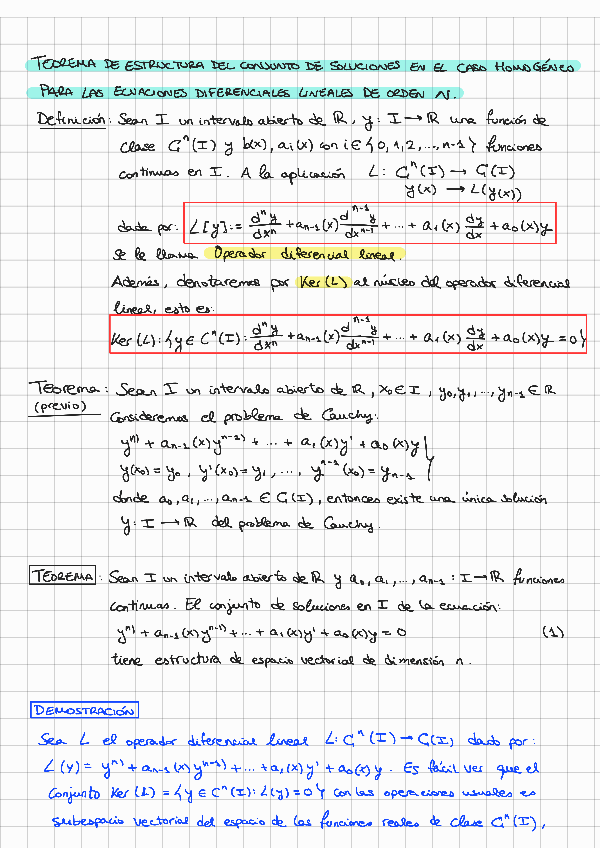 TEOREMA DE ESTRUCTURA DEL CONJUNTO DE SOLUCIONES EN EL CASO HOMOGÉNEO
PARA LAS ECUACIONES DIFERENCIALES LINEALES DE ORDEN N.
Definición: Sean I un intervalo abierto de ℝ, y: I → ℝ una función de
clase Cⁿ(I) y b(x), aᵢ(x) con i ∈ {0,1,2,...,n-1} funciones
continuas en I. A la aplicación L: Cⁿ(I) → C(I)
y(x) → L(y(x))
dada por: L[y]:= dⁿy/dxⁿ + aₙ₋₁(x) dⁿ⁻¹y/dxⁿ⁻¹ + ... + a₁(x) dy/dx + a₀(x)y
se le llama Operador diferencial lineal.
Además, denotaremos por Ker(L) al núcleo del operador diferencial
lineal, esto es:
Ker(L):{y ∈ Cⁿ(I): dⁿy/dxⁿ + aₙ₋₁(x) dⁿ⁻¹y/dxⁿ⁻¹ + ... + a₁(x) dy/dx + a₀(x)y = 0}
Teorema: Sean I un intervalo abierto de ℝ, x₀ ∈ I, y₀, y₁, ..., yₙ₋₁ ∈ ℝ
(previo) Consideremos el problema de Cauchy:
yⁿ⁾ + aₙ₋₁(x)yⁿ⁻¹⁾ + ... + a₁(x)y' + a₀(x)y
y(x₀) = y₀, y'(x₀) = y₁, ..., yⁿ⁻¹(x₀) = yₙ₋₁ }
donde a₀, a₁, ..., aₙ₋₁ ∈ C(I), entonces existe una única solución
y: I → ℝ del problema de Cauchy.
TEOREMA: Sean I un intervalo abierto de ℝ y a₀, a₁, ..., aₙ₋₁ : I → ℝ funciones
continuas. El conjunto de soluciones en I de la ecuación:
yⁿ⁾ + aₙ₋₁(x)yⁿ⁻¹⁾ + ... + a₁(x)y' + a₀(x)y = 0 (1)
tiene estructura de espacio vectorial de dimensión n.
DEMOSTRACIÓN
Sea L el operador diferencial lineal L: Cⁿ(I) → C(I) dado por:
L(y) = yⁿ⁾ + aₙ₋₁(x)yⁿ⁻¹⁾ + ... + a₁(x)y' + a₀(x)y. Es fácil ver que el
conjunto Ker(L) = {y ∈ Cⁿ(I): L(y) = 0} con las operaciones usuales es
subespacio vectorial del espacio de las funciones reales de clase Cⁿ(I),